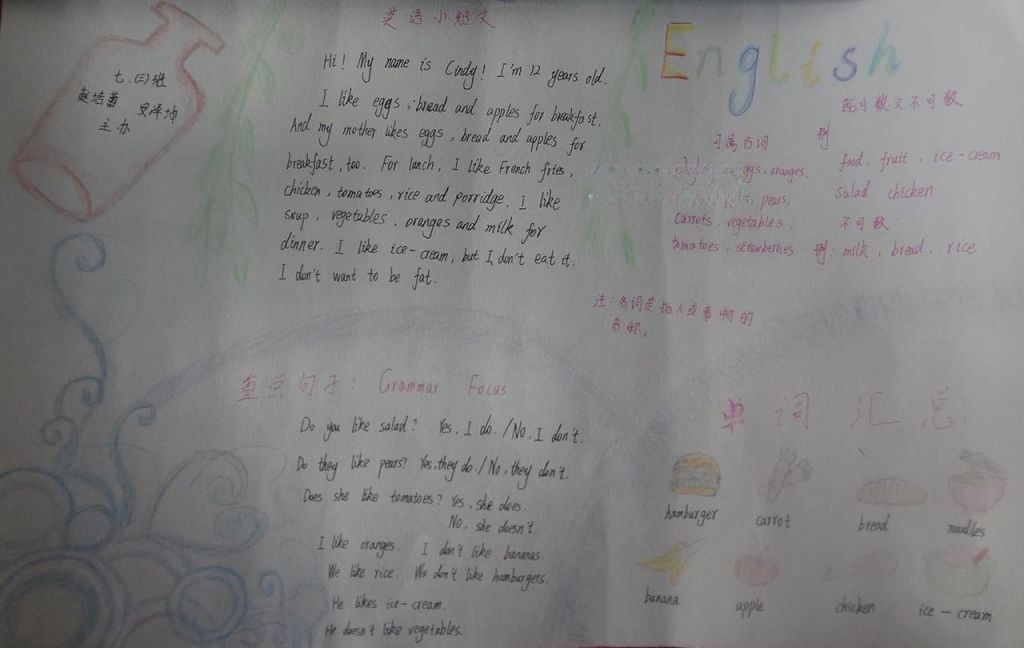 七.(三)班
主办
英语小短文
Hi! My name is Cindy! I'm 12 years old.
I like eggs, bread and apples for breakfast.
And my mother likes eggs, bread and apples for
breakfast, too. For lunch, I like French fries,
chicken, tomatoes, rice and porridge. I like
soup, vegetables, oranges and milk for
dinner. I like ice-cream, but I don't eat it.
I don't want to be fat.
English
可属名词
oranges.
pears,
carrots. vegetables.
tomatoes. strawberries
既可数又不可数
例:
food, fruit, ice-cream
salad chicken
不可数:
例: milk, bread, rice
注:名词是指人或事物的
名称。
重点句子: Grammar Focus
Do you like salad? Yes. I do. /No. I don't.
Do they like pears? Yes,they do./No, they don't.
Does she like tomatoes? Yes, she does.
No, she doesn't.
I like oranges. I don't like bananas.
We like rice. We don't like hamburgers.
He likes ice-cream.
He doesn't like vegetables.
单词汇总
hamburger carrot bread noodles
banana apple chicken ice-cream